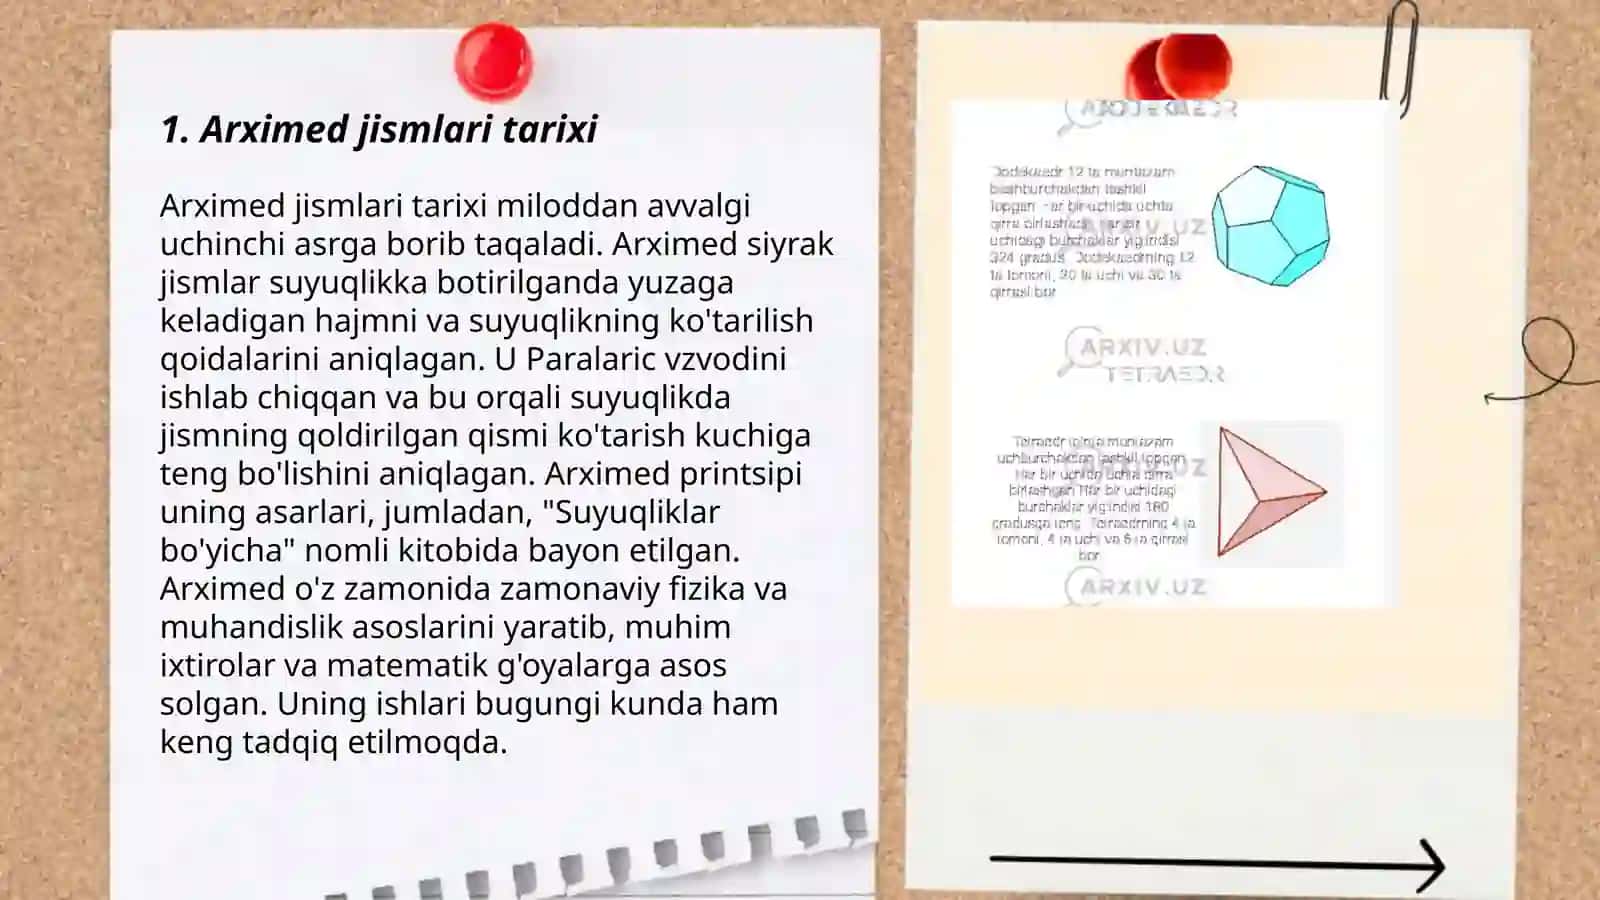 1. Arximed jismlari tarixi
Arximed jismlari tarixi miloddan avvalgi
uchinchi asrga borib taqaladi. Arximed siyrak
jismlar suyuqlikka botirilganda yuzaga
keladigan hajmni va suyuqlikning ko'tarilish
qoidalarini aniqlagan. U Paralaric vzvodini
ishlab chiqqan va bu orqali suyuqlikda
jismning qoldirilgan qismi ko'tarish kuchiga
teng bo'lishini aniqlagan. Arximed printsipi
uning asarlari, jumladan, "Suyuqliklar
bo'yicha" nomli kitobida bayon etilgan.
Arximed o'z zamonida zamonaviy fizika va
muhandislik asoslarini yaratib, muhim
ixtirolar va matematik g'oyalarga asos
solgan. Uning ishlari bugungi kunda ham
keng tadqiq etilmoqda.
Dodekaedr 12 ta muntazam
beshburchakdan tashkil
topgan. Har bir uchida uchta
qirra
uchidagi burchaklar yig'indisi
324 gradus. Dodekaedrning 12
ta tomoni, 20 ta uchi va 30 ta
qirrasi bor
ARXIV.UZ
TETRAEDR
Tetraedr muntazam
uchburchakdan tashkil topgan
Har bir uchida uchta qirra
birlashgan Har bir uchidagi
burchaklar yig'indisi 180
gradusga teng. Tetraedrning 4 ta
tomoni, 4 ta uchi va 6 ta qirrasi
bor
ARXIV.UZ